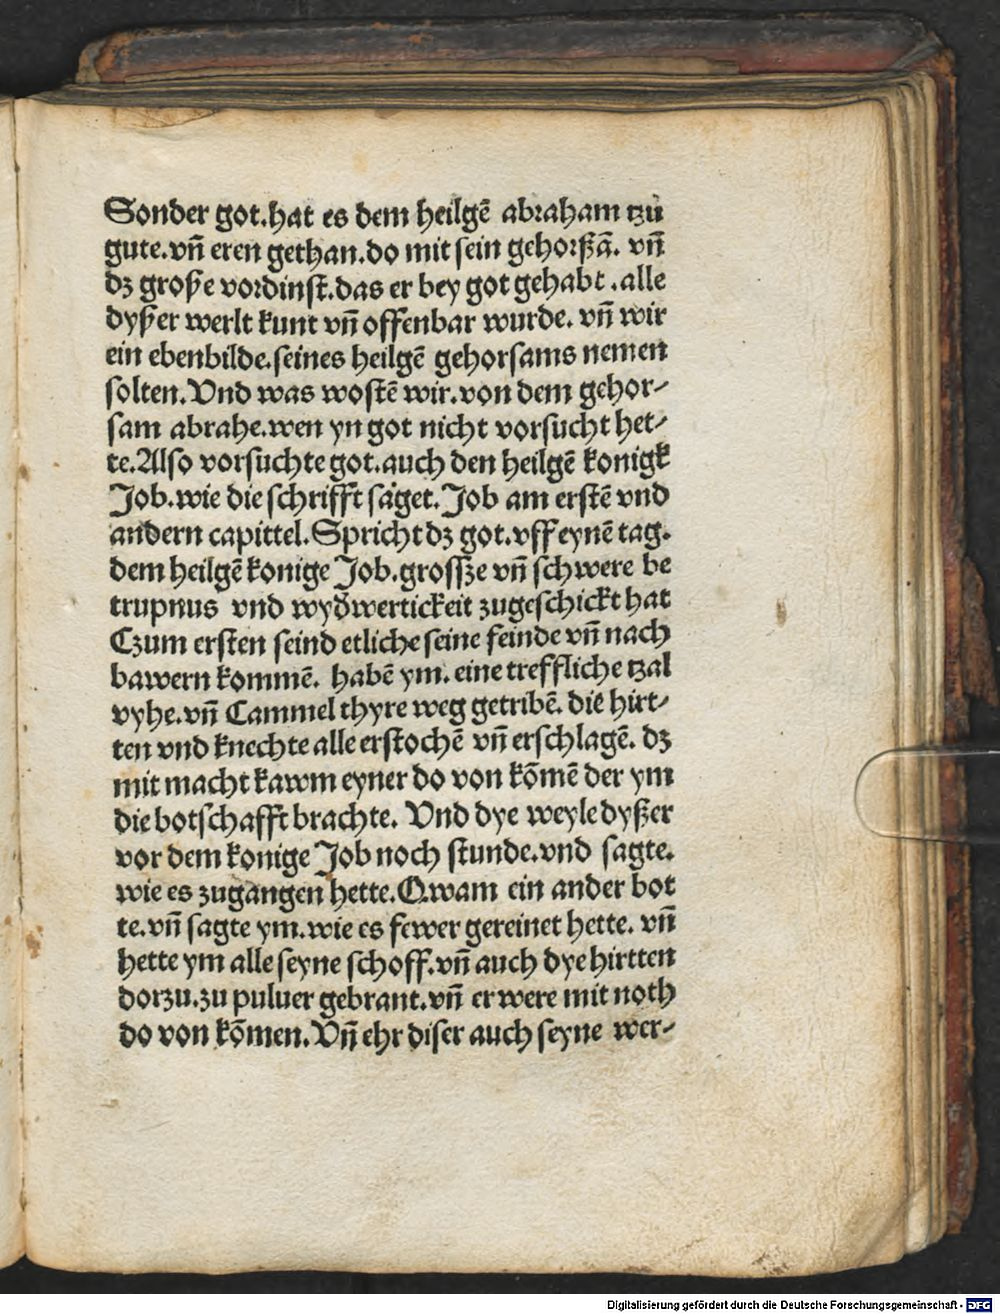 Sonder got.hat es dem heilgē abraham tzu
gute.vn̄ eren gethan.do mit sein gehorßā. vn̄
dz große vordinst.das er bey got gehabt .alle
dyßer werlt kunt vn̄ offenbar wurde. vn̄ wir
ein ebenbilde.seines heilgē gehorsams nemen
solten.Vnd was wostē wir.von dem gehor-
sam abrahe.wen yn got nicht vorsucht het-
te.Also vorsuchte got.auch den heilgē konigk
Job.wie die schrifft saget.Job am erstē vnd
andern capittel.Spricht dz got.vff eynē tag.
dem heilgē konige Job.grossze vn̄ schwere be
trupnus vnd wyd̄wertickeit zugeschickt hat
Czum ersten seind etliche seine feinde vn̄ nach
bawern kommē. habē ym. eine treffliche tzal
vyhe.vn̄ Cammel thyre weg getribē. die hirt-
ten vnd knechte alle erstochē vn̄ erschlagē. dz
mit macht kawm eyner do von kōmē der ym
die botschafft brachte. Vnd dye weyle dyßer
vor dem konige Job noch stunde.vnd sagte.
wie es zugangen hette.Qwam ein ander bot
te.vn̄ sagte ym.wie es fewer gereinet hette. vn̄
hette ym alle seyne schoff.vn̄ auch dye hirtten
dorzu.zu puluer gebrant.vn̄ er were mit noth
do von kōmen.Vn̄ ehr diser auch seyne wer-
Digitalisierung gefördert durch die Deutsche Forschungsgemeinschaft - DFG